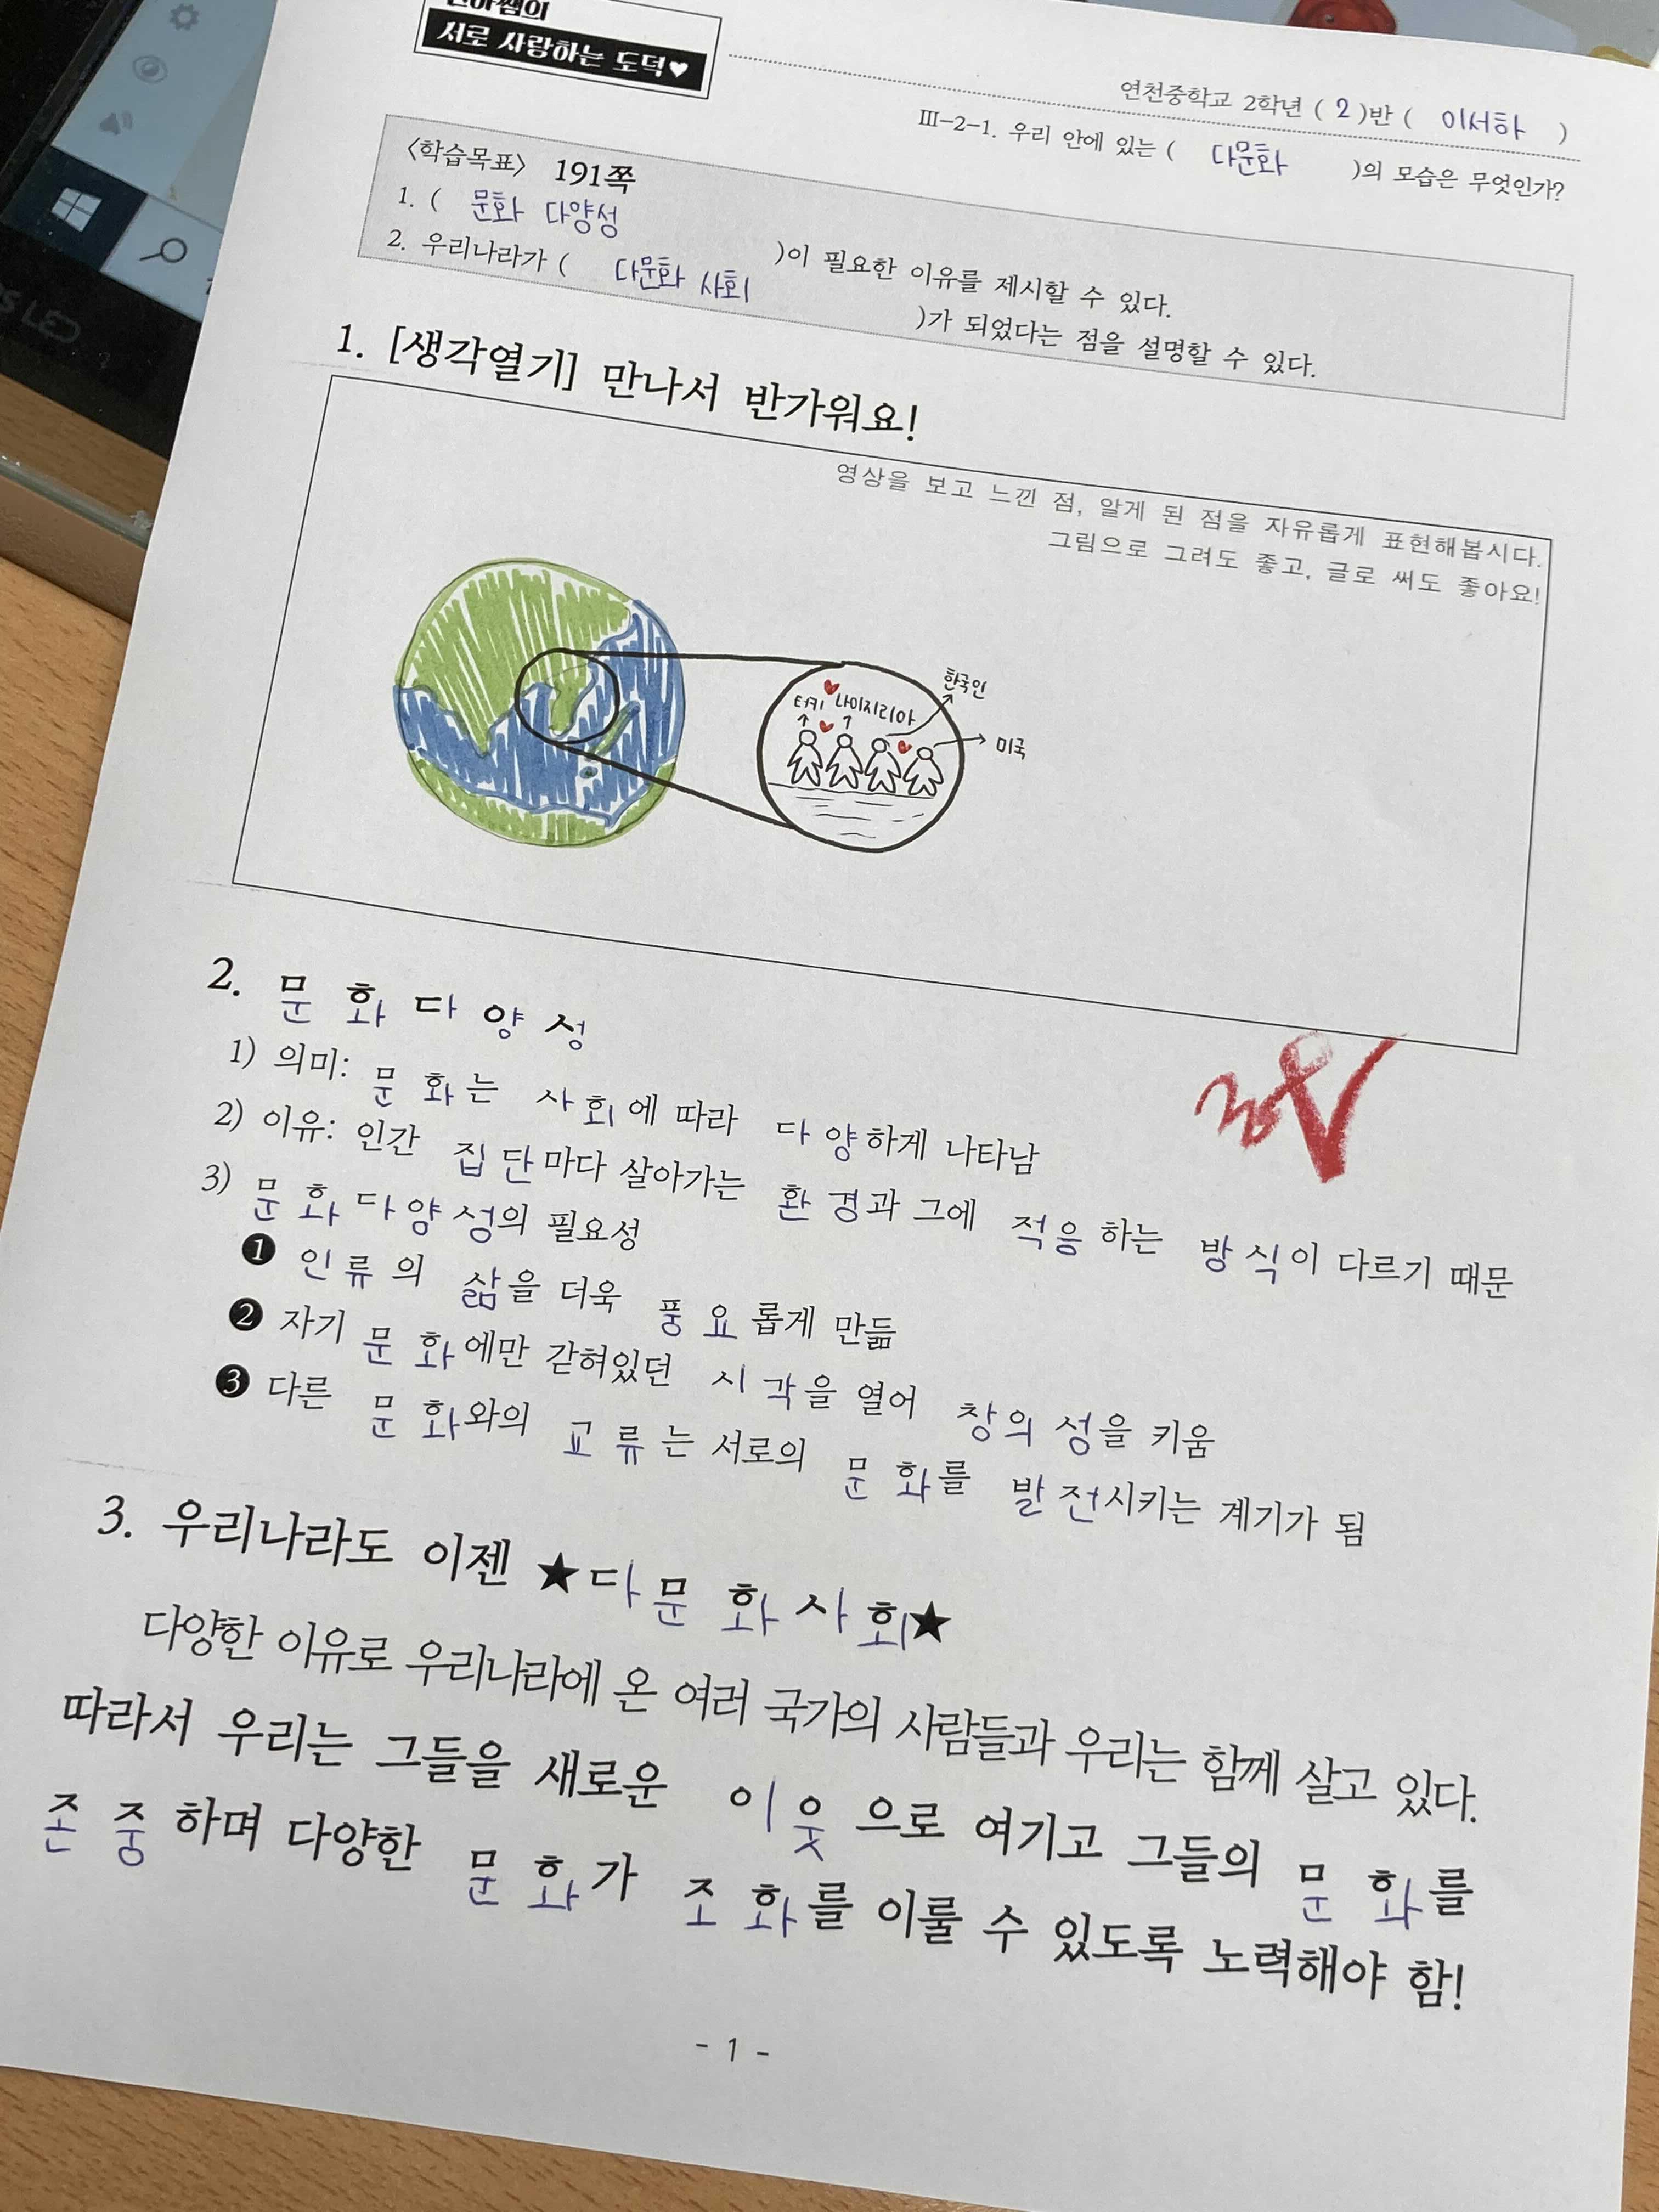 서로 사랑하는 도덕♥
연천중학교 2학년 ( 2 )반 ( 이서하 )
Ⅲ-2-1. 우리 안에 있는 ( 다문화 )의 모습은 무엇인가?
<학습목표> 191쪽
1. ( 문화 다양성 )이 필요한 이유를 제시할 수 있다.
2. 우리나라가 ( 다문화 사회 )가 되었다는 점을 설명할 수 있다.
1. [생각열기] 만나서 반가워요!
영상을 보고 느낀 점, 알게 된 점을 자유롭게 표현해봅시다.
그림으로 그려도 좋고, 글로 써도 좋아요!
한국인
터키 나이지리아
미국
2. 문화다양성
1) 의미: 문화는 사회에 따라 다양하게 나타남
2) 이유: 인간 집단마다 살아가는 환경과 그에 적응하는 방식이 다르기 때문
3) 문화다양성의 필요성
❶ 인류의 삶을 더욱 풍요롭게 만듦
❷ 자기 문화에만 갇혀있던 시각을 열어 창의성을 키움
❸ 다른 문화와의 교류는 서로의 문화를 발전시키는 계기가 됨
3. 우리나라도 이젠 ★다문화사회★
다양한 이유로 우리나라에 온 여러 국가의 사람들과 우리는 함께 살고 있다.
따라서 우리는 그들을 새로운 이웃으로 여기고 그들의 문화를
존중하며 다양한 문화가 조화를 이룰 수 있도록 노력해야 함!
- 1 -